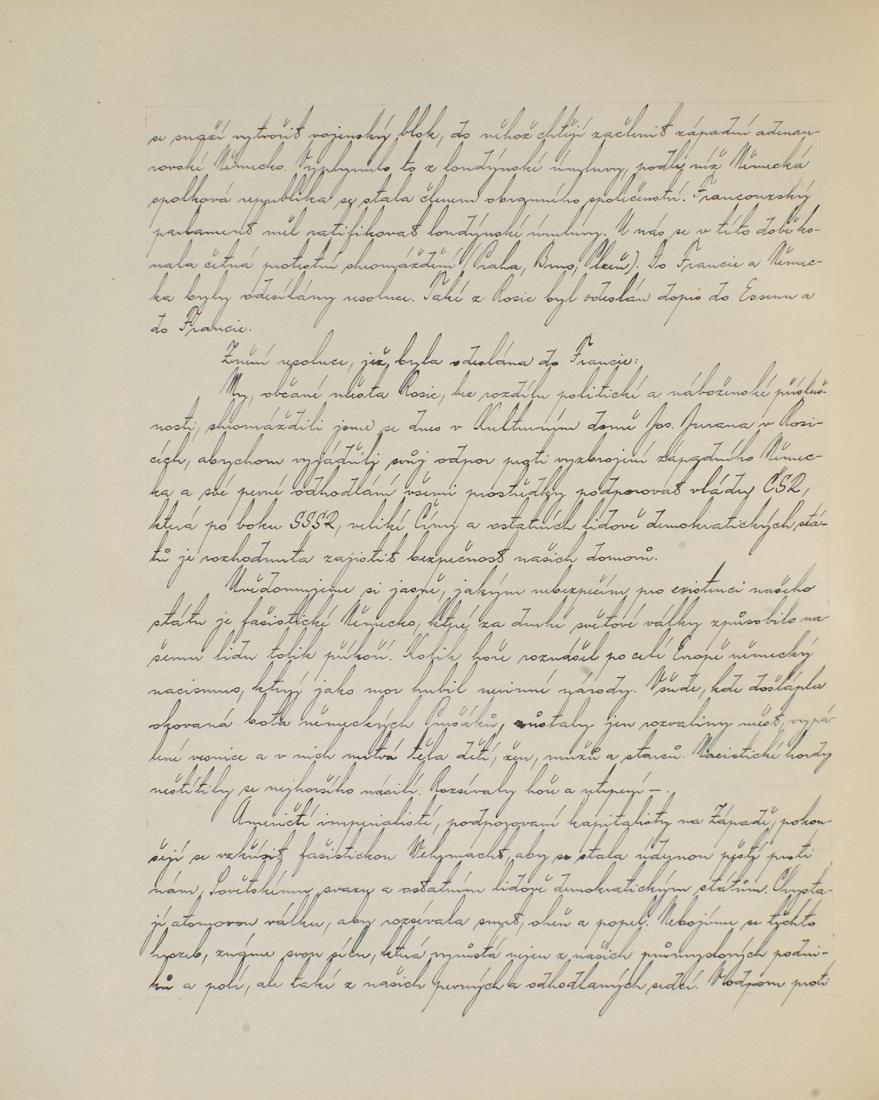 se snaží vytvořit vojenský blok, do něhož chtějí začlenit západní adenau-
rovské Německo. Vyplynulo to z londýnské úmluvy, podle níž Německá
spolková republika se stala členem obranného společenství. Francouzský
parlament měl ratifikovat londýnské úmluvy. U nás se v této době ko-
nala četná protestní shromáždění (Praha, Brno, Plzeň). Do Francie a Němec-
ka byly odesílány resoluce. Také z Rosic byl odeslán dopis do Essenu a
do Francie.
Znění resoluce, jež byla odeslána do Francie:
My, občané města Rosic, bez rozdílu politické a náboženské přísluš-
nosti, shromáždili jsme se dnes v Kulturním domě Jos. Jurana v Rosi-
cích, abychom vyjádřili svůj odpor proti vyzbrojení západního Němec-
ka a své pevné odhodlání všemi prostředky podporovat vládu ČSR,
která po boku SSSR, veliké Číny a ostatních lidově demokratických stá-
tů je rozhodnuta zajistit bezpečnost našich domovů.
Uvědomujeme si jasně, jakým nebezpečím pro existenci našeho
státu je fašistické Německo, které za druhé světové války způsobilo na-
šemu lidu tolik příkoří. Kolik hoře roznášel po celé Evropě německý
nacismus, který jako mor hubil nevinné národy. Všude, kde došlápla
okovaná bota německých Prušáků, zůstaly jen rozvaliny měst, vypá
lené vesnice a v nich mrtvá těla dětí, žen, mužů a starců. Nacistické hordy
neštítily se nejhoršího násilí. Rozsévaly hoře a utrpení –.
Američtí imperialisté, podporovaní kapitalisty na Západě, pokou-
šejí se vzkřísit fašistickou Wehrmacht, aby se stala údernou pěstí proti
nám, Sovětskému svazu a ostatním lidově demokratickým státům. Chysta-
jí atomovou válku, aby rozsévala smrt, oheň a popel. Nebojíme se těchto
hrozeb, známe svou sílu, která vyrůstá nejen z našich průmyslových podni-
ků a polí, ale také z našich pevných a odhodlaných srdcí. V odporu proti